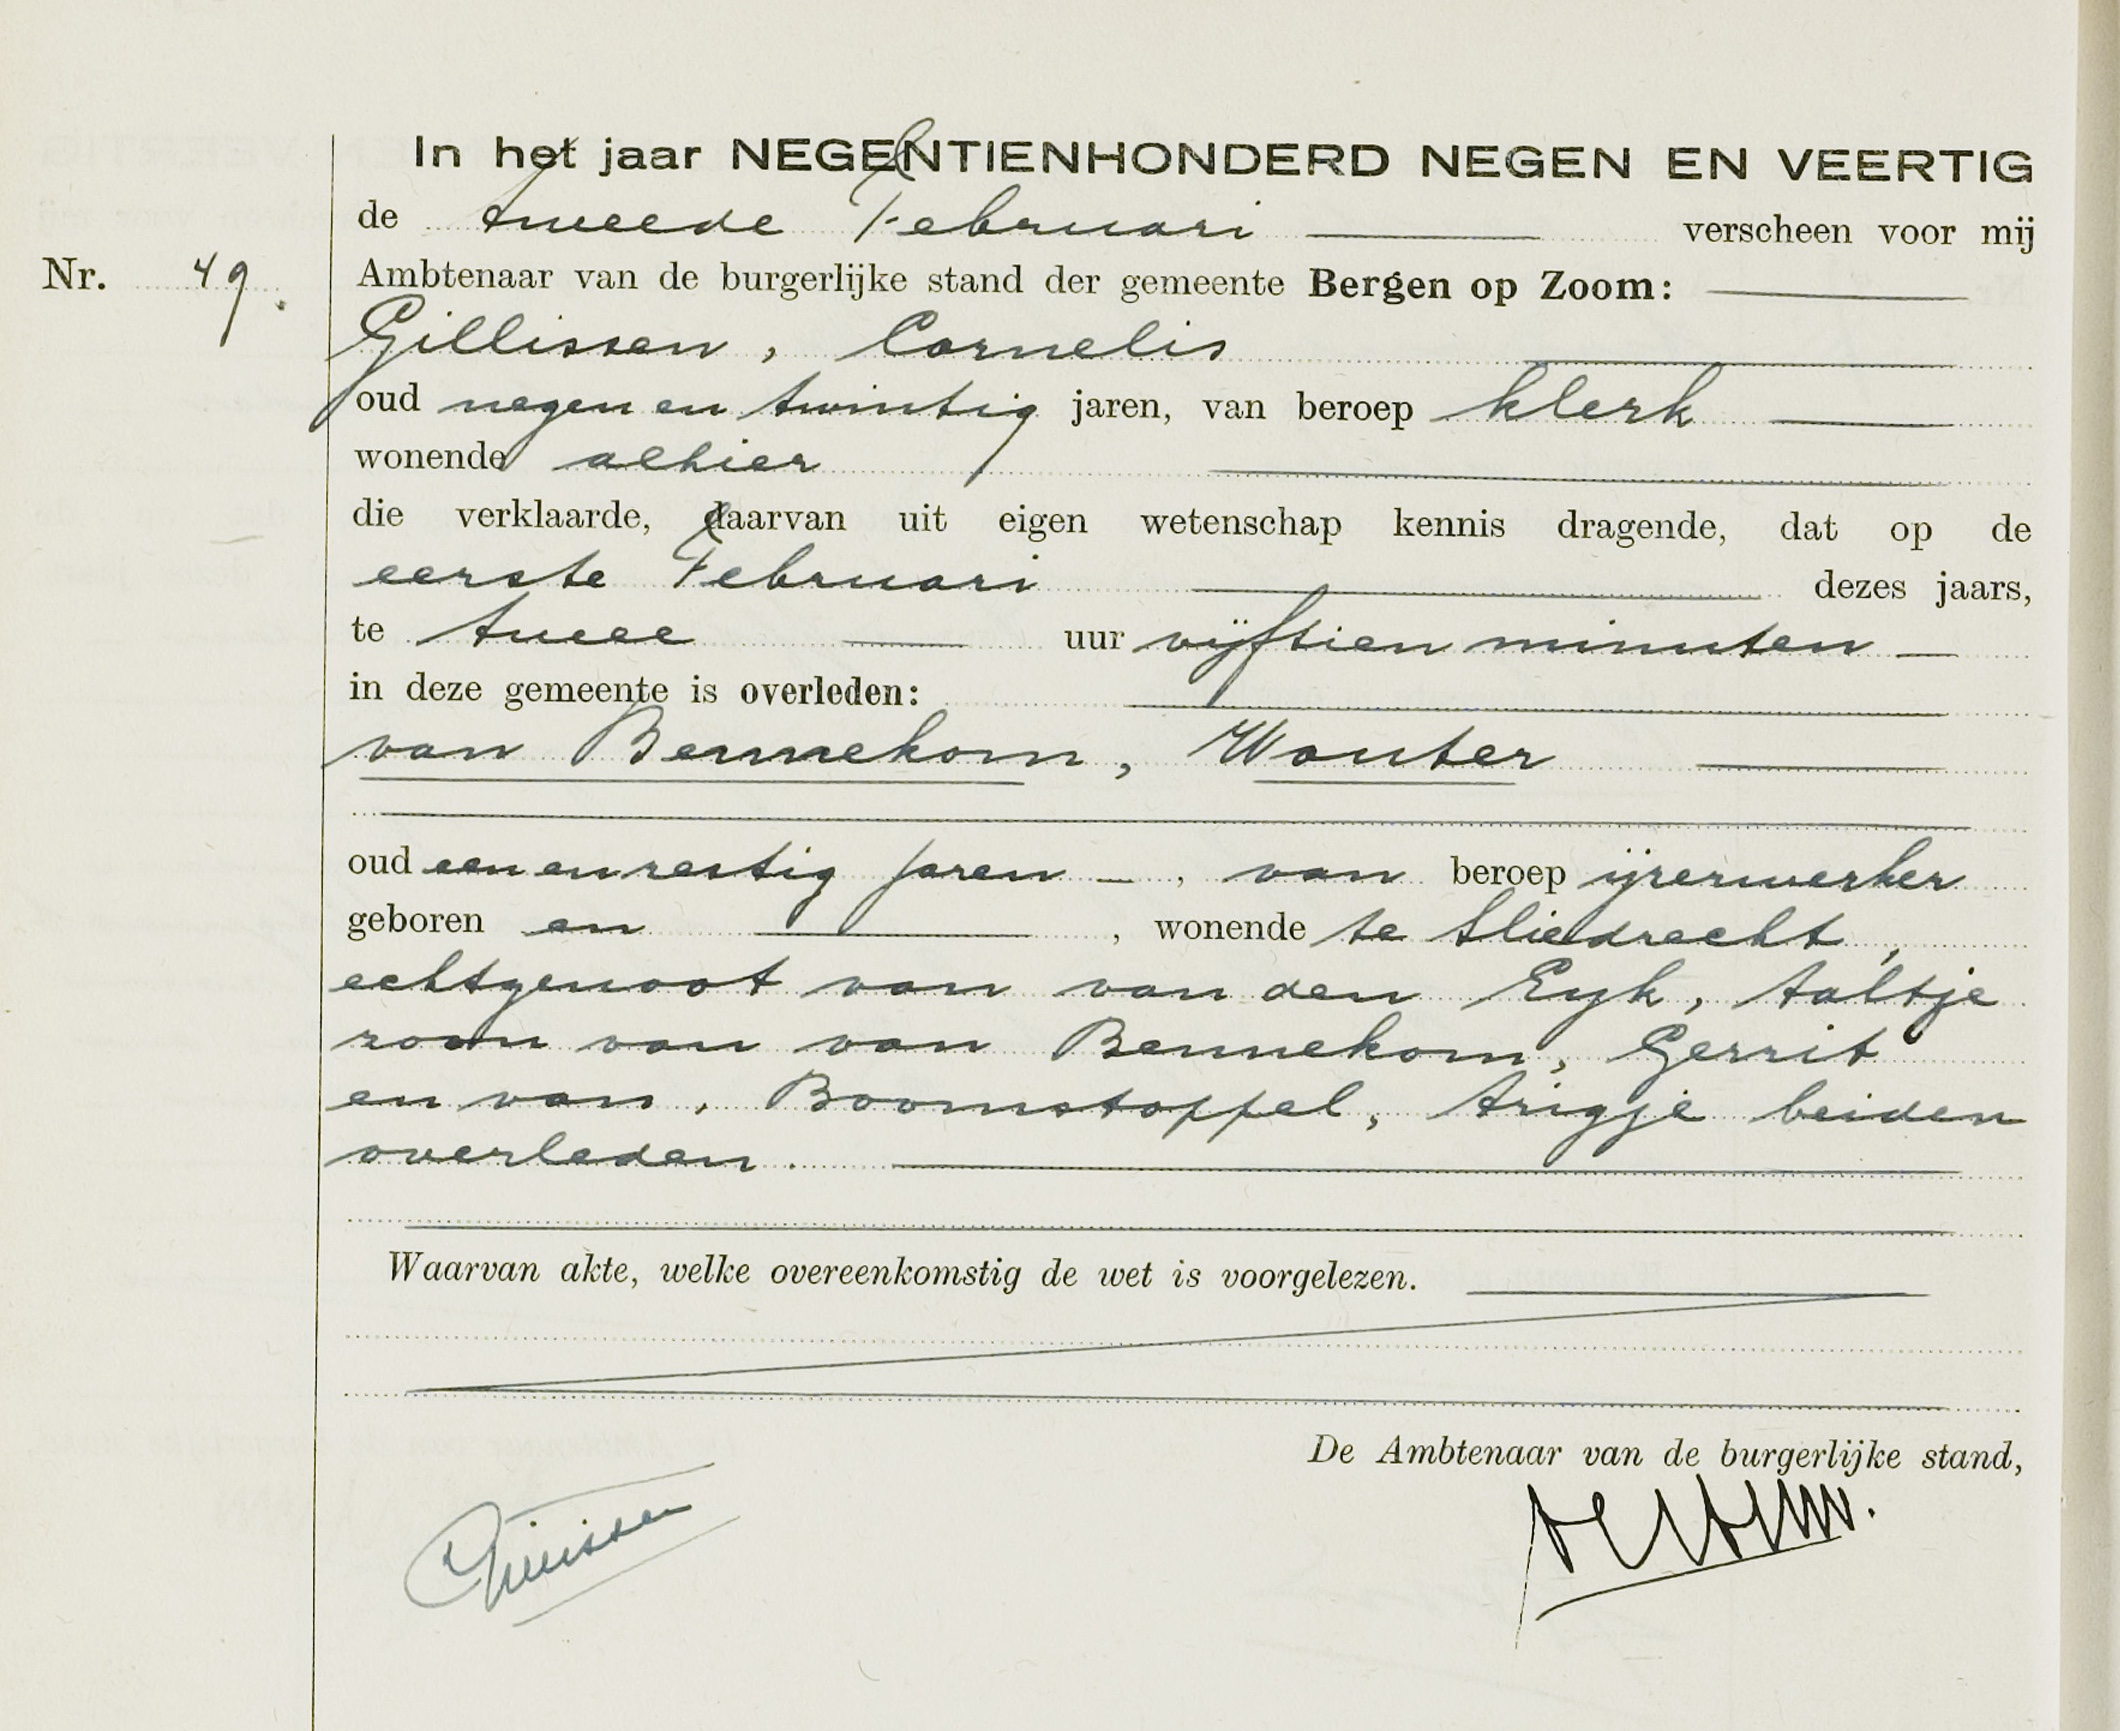 In het jaar NEGENTIENHONDERD NEGEN EN VEERTIG
de tweede Februari verscheen voor mij
Nr. 49. Ambtenaar van de burgerlijke stand der gemeente Bergen op Zoom:
Gillissen, Cornelis
oud negen en twintig jaren, van beroep klerk
wonende alhier
die verklaarde, daarvan uit eigen wetenschap kennis dragende, dat op de
eerste Februari dezes jaars,
te twee uur vijftien minuten
in deze gemeente is overleden:
van Bennekom, Wouter
oud een en zestig jaren, van beroep ijzerwerker
geboren en, wonende te Sliedrecht,
echtgenoot van van den Eyk, Aaltje
zoon van van Bennekom, Gerrit
en van. Boomstoppel, Arigje beiden
overleden.
Waarvan akte, welke overeenkomstig de wet is voorgelezen.
De Ambtenaar van de burgerlijke stand,
CGillissen